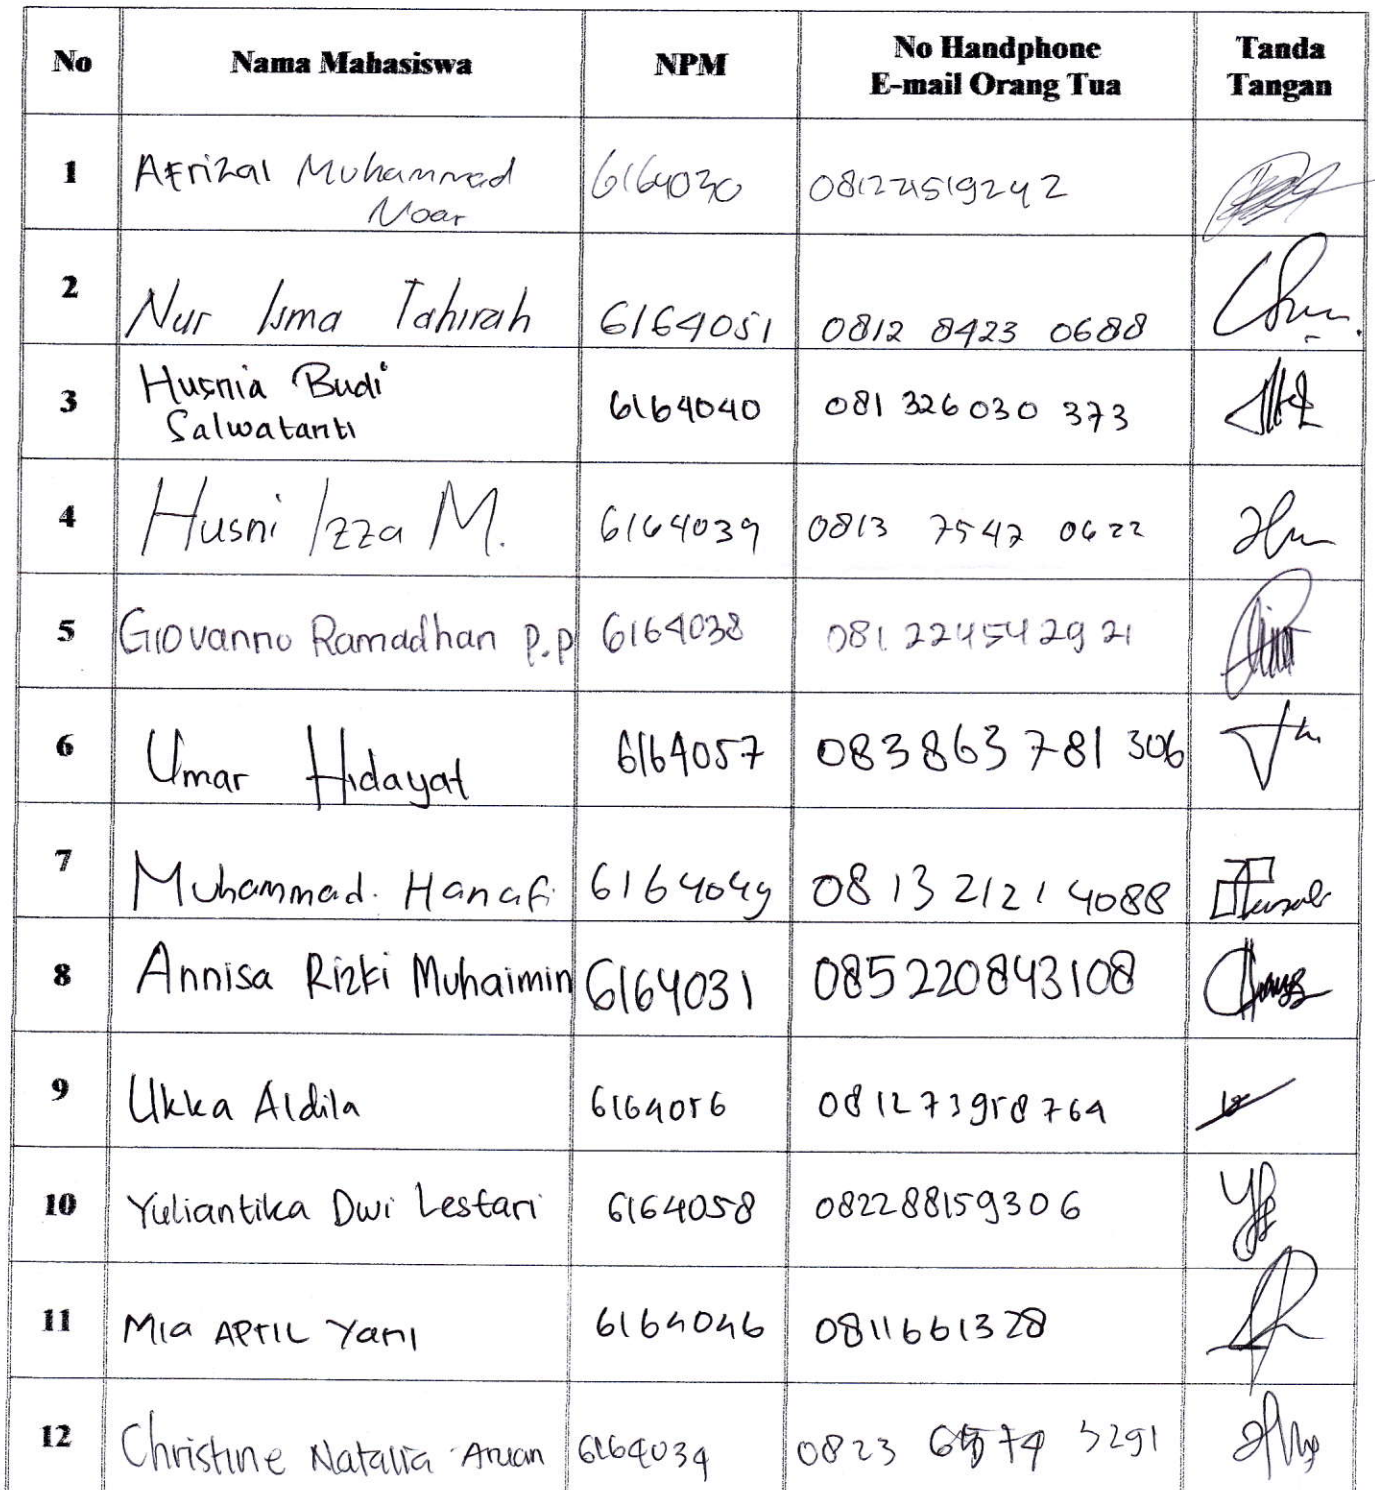 No Nama Mahasiswa NPM No Handphone Tanda
E-mail Orang Tua Tangan
1 Afrizal Muhammad 6164030 081221519242
Noar
2 Nur Isma Tahirah 6164051 0812 8423 0688
3 Husnia Budi 6164040 081 326 030 373
Salwatanti
4 Husni Izza M. 6164039 0813 7547 0622
5 Giovanno Ramadhan P.P 6164038 081 224542921
6 Umar Hidayat 6164057 083863 781 306
7 Muhammad. Hanafi 6164049 08 13 2121 4088
8 Annisa Rizki Muhaimin 6164031 085220843108
9 Ukka Aldila 6164056 081273958764
10 Yuliantika Dwi Lestari 6164058 082288159306
11 Mia APRIL Yani 6164046 0811661328
12 Christine Natalia 6164034 0823 3291